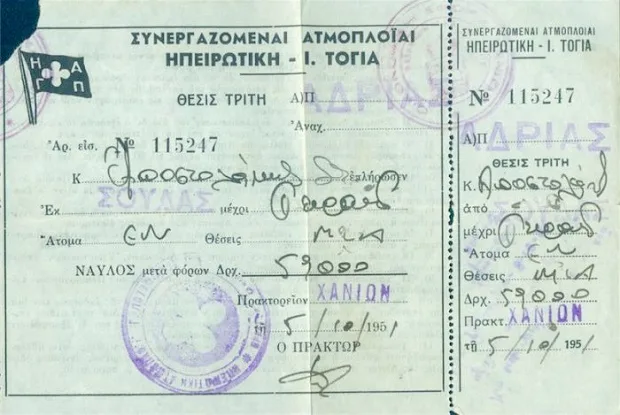 Η Α
Γ Π
ΣΥΝΕΡΓΑΖΟΜΕΝΑΙ ΑΤΜΟΠΛΟΪΑΙ
ΗΠΕΙΡΩΤΙΚΗ - Ι. ΤΟΓΙΑ
ΘΕΣΙΣ ΤΡΙΤΗ Α)Π ΑΔΡΙΑΣ
Ἀναχ.
Ἀρ. εἰσ. № 115247
Κ ἐπλήρωσεν
ΣΟΥΔΑΣ
Ἐκ μέχρι Πειραιᾶ
Ἄτομα ΕΝ Θέσεις ΜΙΑ
ΝΑΥΛΟΣ μετά φόρων Δρχ. 59000
Πρακτορεῖον ΧΑΝΙΩΝ
τῇ 5/10/1951
Ο ΠΡΑΚΤΩΡ
ΣΥΝΕΡΓΑΖΟΜΕΝΑΙ ΑΤΜΟΠΛΟΪΑΙ
ΗΠΕΙΡΩΤΙΚΗ - Ι. ΤΟΓΙΑ
№ 115247
Α)Π ΑΔΡΙΑΣ
ΘΕΣΙΣ ΤΡΙΤΗ
Κ.
ἀπό
μέχρι Πειραιᾶ
Ἄτομα ΕΝ
Θέσεις ΜΙΑ
Δρχ. 59000
Πρακτ. ΧΑΝΙΩΝ
τῇ 5/10/1951